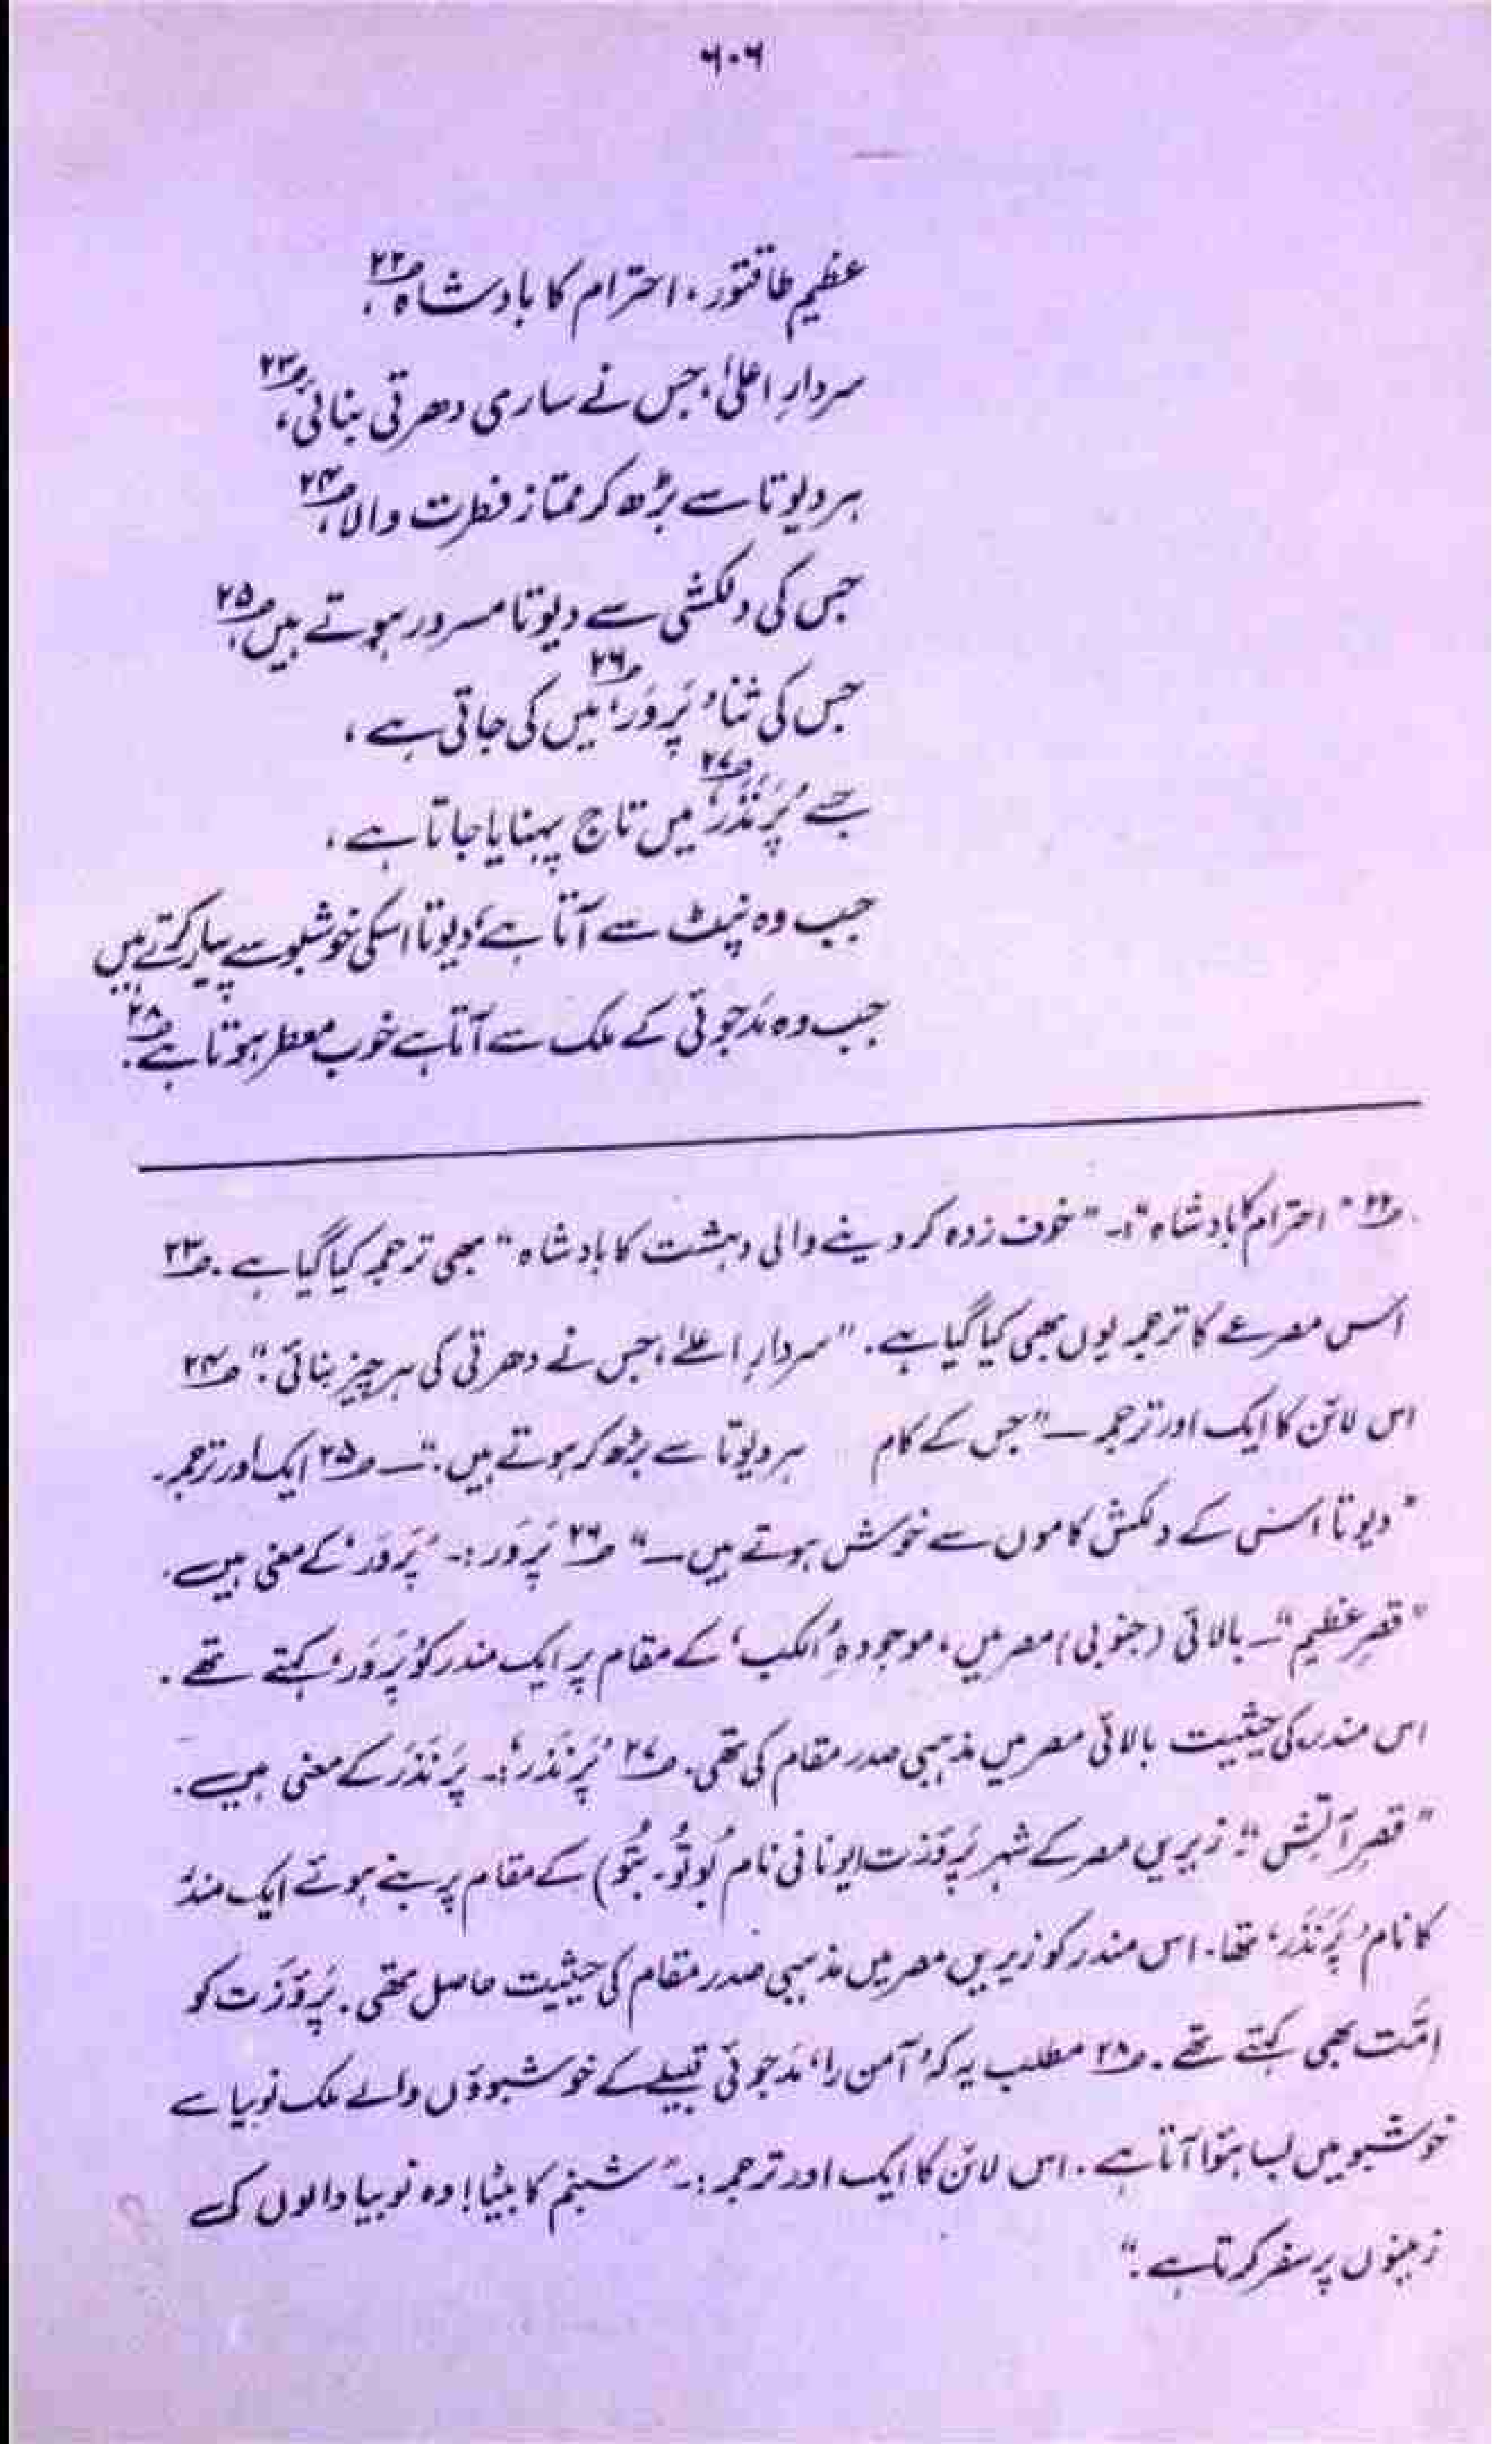 ۶۰۶
عظیم طاقتور، احترام کا بادشاہ ؂۲۲،
سردارِ اعلیٰ، جس نے ساری دھرتی بنائی ؂۲۳،
ہر دیوتا سے بڑھ کر ممتاز فطرت والا ؂۲۴،
جس کی دلکشی سے دیوتا مسرور ہوتے ہیں ؂۲۵،
جس کی ثنا ’پَروَر‘ ؂۲۶ میں کی جاتی ہے،
جسے ’پَرنَذَر‘ ؂۲۷ میں تاج پہنایا جاتا ہے،
جب وہ پنٹ سے آتا ہے، دیوتا اسکی خوشبو سے پیار کرتے ہیں
جب وہ مَدجوئی کے ملک سے آتا ہے خوب معطر ہوتا ہے ؂۲۸.
؂۲۲ "احترام کا بادشاہ":۔ "خوف زدہ کر دینے والی دہشت کا بادشاہ" بھی ترجمہ کیا گیا ہے۔ ؂۲۳
اس مصرعے کا ترجمہ یوں بھی کیا گیا ہے۔ "سردارِ اعلےٰ، جس نے دھرتی کی ہر چیز بنائی۔" ؂۲۴
اس لائن کا ایک اور ترجمہ — "جس کے کام ہر دیوتا سے بڑھ کر ہوتے ہیں۔" — ؂۲۵ ایک اور ترجمہ۔
"دیوتا اس کے دلکش کاموں سے خوش ہوتے ہیں —" ؂۲۶ پَروَر:۔ ’پَروَر‘ کے معنی ہیں۔
"قصرِ عظیم"۔ بالائی (جنوبی) مصر میں، موجودہ ’الکب‘ کے مقام پر ایک مندر کو ’پَروَر‘ کہتے تھے۔
اس مندر کی حیثیت بالائی مصر میں مذہبی صدر مقام کی تھی۔ ؂۲۷ ’پَرنَذَر‘:۔ پَرنَذَر کے معنی ہیں۔
"قصرِ آتش"۔ زیریں مصر کے شہر پَروَزَت (یونانی نام بُوتُو۔ بُتُو) کے مقام پر بنے ہوئے ایک مندر
کا نام ’پَرنَذَر‘ تھا۔ اس مندر کو زیریں مصر میں مذہبی صدر مقام کی حیثیت حاصل تھی۔ پَروَزَت کو
امَّت بھی کہتے تھے۔ ؂۲۸ مطلب یہ کہ ’آمن را‘ مَدجوئی قبیلے کے خوشبوؤں والے ملک نوبیا سے
خوشبو میں بسا ہوا آتا ہے۔ اس لائن کا ایک اور ترجمہ:۔ "شبنم کا بیٹا! وہ نوبیا والوں کی
زمینوں پر سفر کرتا ہے۔"